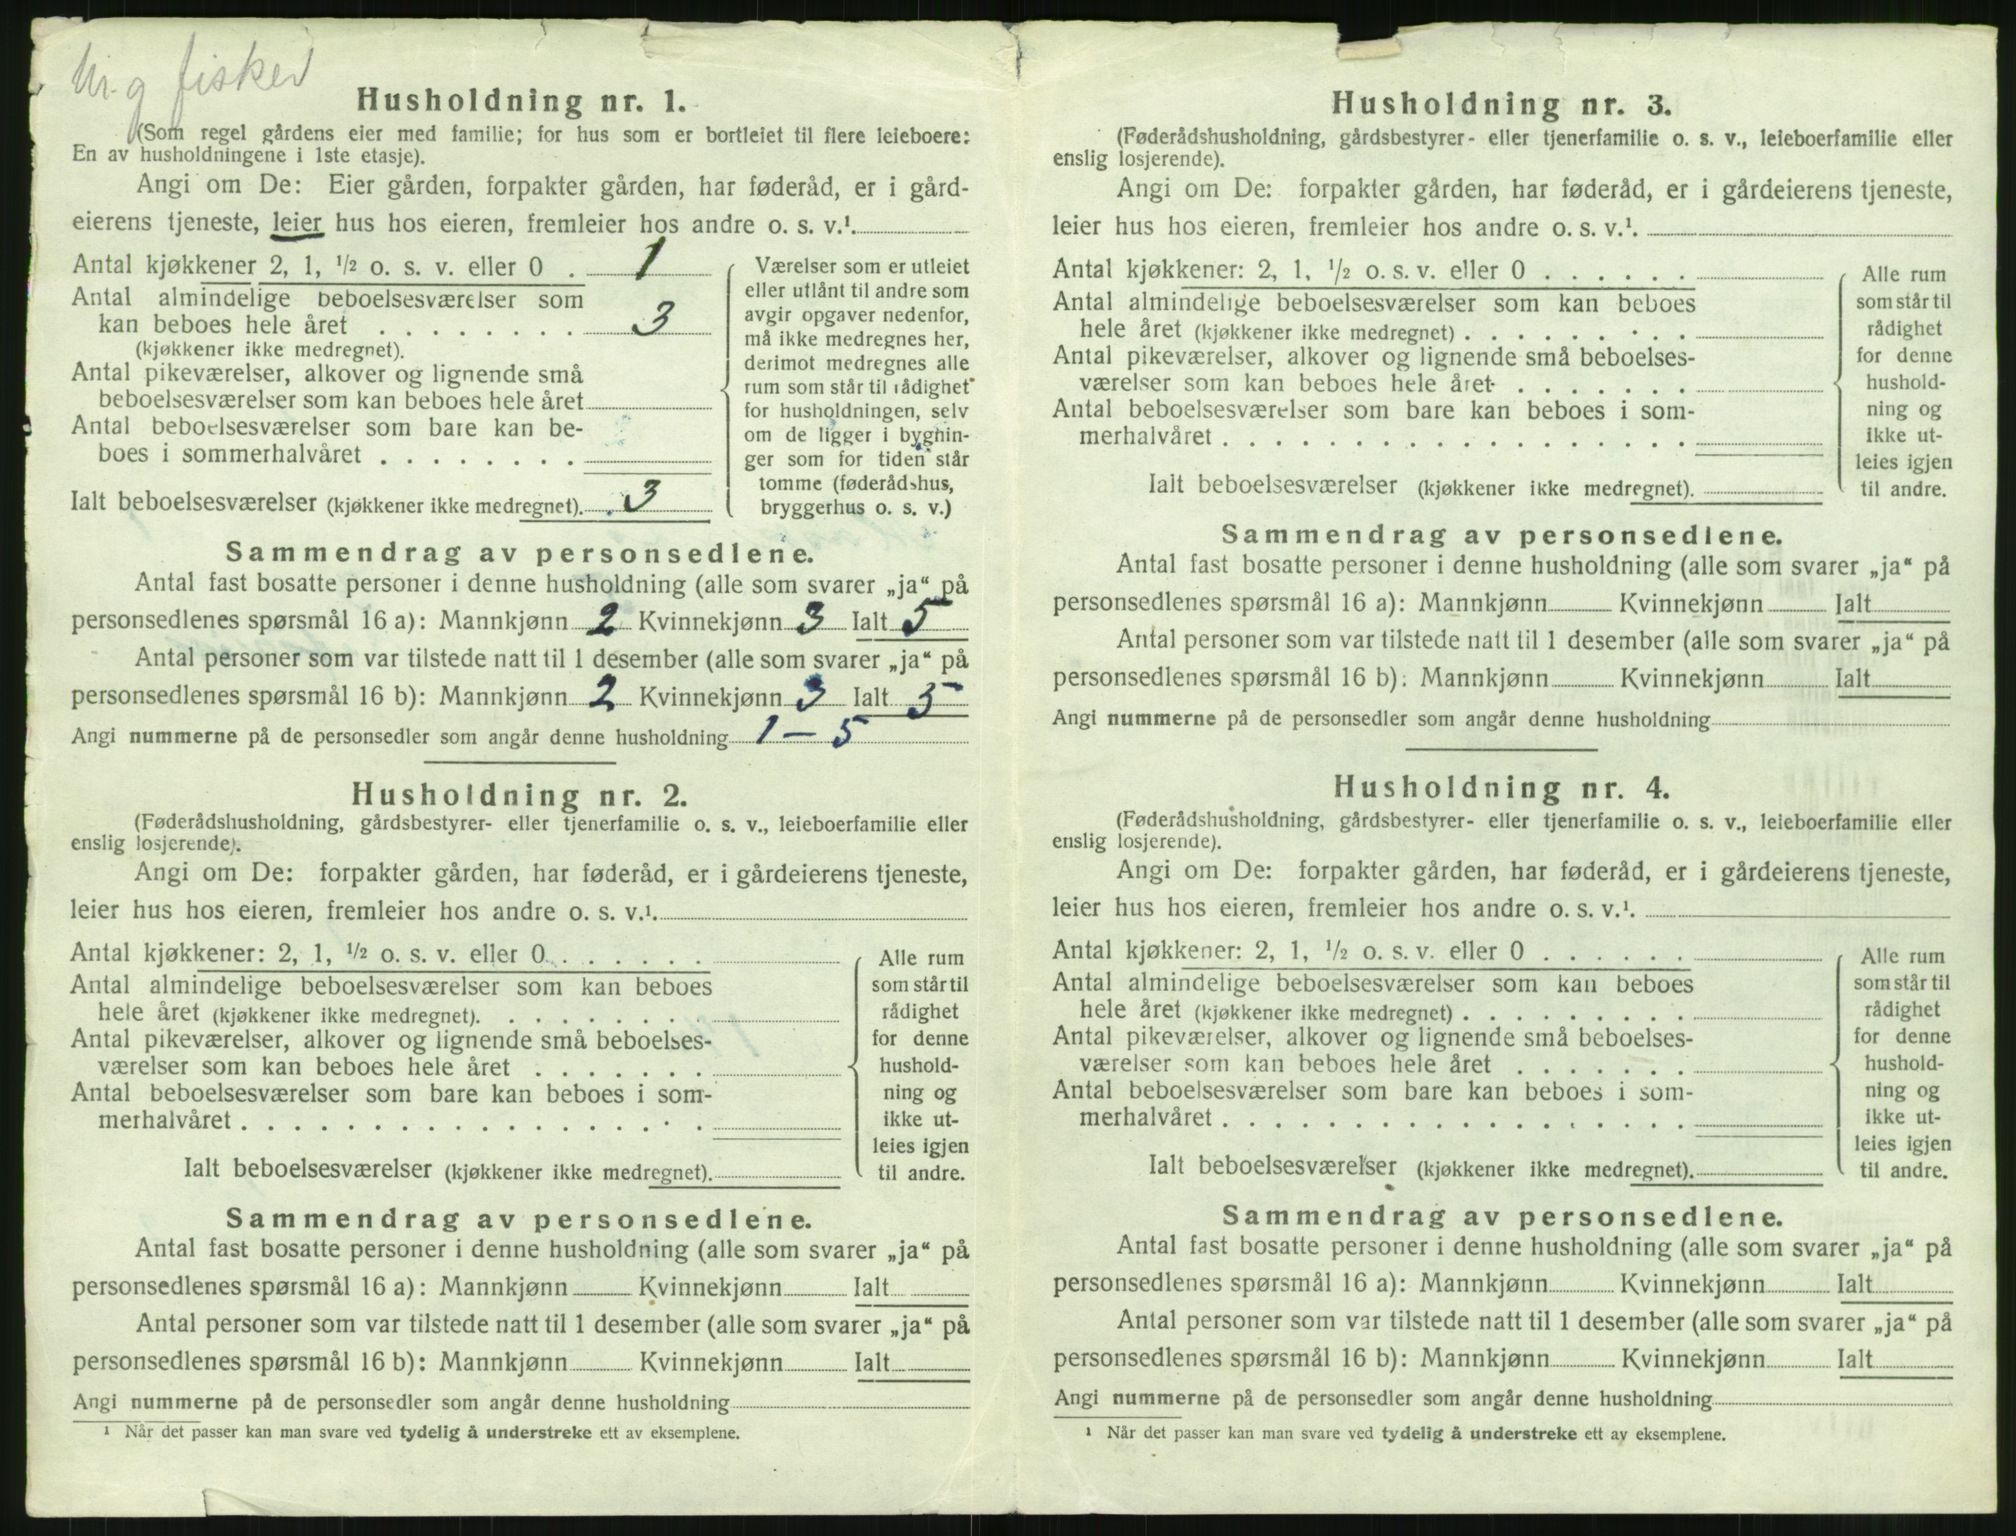 fisker
Husholdning nr. 1.
(Som regel gårdens eier med familie; for hus som er bortleiet til flere leieboere:
En av husholdningene i 1ste etasje).
Angi om De: Eier gården, forpakter gården, har føderåd, er i gård-
eierens tjeneste, leier hus hos eieren, fremleier hos andre o. s. v.¹
Antal kjøkkener 2, 1, ½ o. s. v. eller 0 . 1
Antal almindelige beboelsesværelser som
kan beboes hele året . . . . . . . . 3
(kjøkkener ikke medregnet).
Antal pikeværelser, alkover og lignende små
beboelsesværelser som kan beboes hele året
Antal beboelsesværelser som bare kan be-
boes i sommerhalvåret . . . . . . . .
Ialt beboelsesværelser (kjøkkener ikke medregnet). 3
Værelser som er utleiet
eller utlånt til andre som
avgir opgaver nedenfor,
må ikke medregnes her,
derimot medregnes alle
rum som står til rådighet
for husholdningen, selv
om de ligger i bygnin-
ger som for tiden står
tomme (føderådshus,
bryggerhus o. s. v.)
Sammendrag av personsedlene.
Antal fast bosatte personer i denne husholdning (alle som svarer „ja“ på
personsedlenes spørsmål 16 a): Mannkjønn 2 Kvinnekjønn 3 Ialt 5
Antal personer som var tilstede natt til 1 desember (alle som svarer „ja“ på
personsedlenes spørsmål 16 b): Mannkjønn 2 Kvinnekjønn 3 Ialt 5
Angi nummerne på de personsedler som angår denne husholdning 1 — 5
Husholdning nr. 2.
(Føderådshusholdning, gårdsbestyrer- eller tjenerfamilie o. s. v., leieboerfamilie eller
enslig losjerende).
Angi om De: forpakter gården, har føderåd, er i gårdeierens tjeneste,
leier hus hos eieren, fremleier hos andre o. s. v.¹.
Antal kjøkkener: 2, 1, ½ o. s. v. eller 0 . . . . . .
Antal almindelige beboelsesværelser som kan beboes
hele året (kjøkkener ikke medregnet). . . . . . . .
Antal pikeværelser, alkover og lignende små beboelses-
værelser som kan beboes hele året . . . . . . .
Antal beboelsesværelser som bare kan beboes i som-
merhalvåret . . . . . . . . . . . . . . . . . .
Ialt beboelsesværelser (kjøkkener ikke medregnet).
Alle rum
som står til
rådighet
for denne
hushold-
ning og
ikke ut-
leies igjen
til andre.
Sammendrag av personsedlene.
Antal fast bosatte personer i denne husholdning (alle som svarer „ja“ på
personsedlenes spørsmål 16 a): Mannkjønn Kvinnekjønn Ialt
Antal personer som var tilstede natt til 1 desember (alle som svarer „ja“ på
personsedlenes spørsmål 16 b): Mannkjønn Kvinnekjønn Ialt
Angi nummerne på de personsedler som angår denne husholdning
¹ Når det passer kan man svare ved tydelig å understreke ett av eksemplene.
Husholdning nr. 3.
(Føderådshusholdning, gårdsbestyrer- eller tjenerfamilie o. s. v., leieboerfamilie eller
enslig losjerende).
Angi om De: forpakter gården, har føderåd, er i gårdeierens tjeneste,
leier hus hos eieren, fremleier hos andre o. s. v.¹.
Antal kjøkkener: 2, 1, ½ o. s. v. eller 0 . . . . . .
Antal almindelige beboelsesværelser som kan beboes
hele året (kjøkkener ikke medregnet) . . . . . . . . .
Antal pikeværelser, alkover og lignende små beboelses-
værelser som kan beboes hele året . . . . . . .
Antal beboelsesværelser som bare kan beboes i som-
merhalvåret . . . . . . . . . . . . . . . . . .
Ialt beboelsesværelser (kjøkkener ikke medregnet).
Alle rum
som står til
rådighet
for denne
hushold-
ning og
ikke ut-
leies igjen
til andre.
Sammendrag av personsedlene.
Antal fast bosatte personer i denne husholdning (alle som svarer „ja“ på
personsedlenes spørsmål 16 a): Mannkjønn Kvinnekjønn Ialt
Antal personer som var tilstede natt til 1 desember (alle som svarer „ja“ på
personsedlenes spørsmål 16 b): Mannkjønn Kvinnekjønn Ialt
Angi nummerne på de personsedler som angår denne husholdning
Husholdning nr. 4.
(Føderådshusholdning, gårdsbestyrer- eller tjenerfamilie o. s. v., leieboerfamilie eller
enslig losjerende).
Angi om De: forpakter gården, har føderåd, er i gårdeierens tjeneste,
leier hus hos eieren, fremleier hos andre o. s. v.¹.
Antal kjøkkener: 2, 1, ½ o. s. v. eller 0 . . . . . .
Antal almindelige beboelsesværelser som kan beboes
hele året (kjøkkener ikke medregnet) . . . . . . . . .
Antal pikeværelser, alkover og lignende små beboelses-
værelser som kan beboes hele året . . . . . . .
Antal beboelsesværelser som bare kan beboes i som-
merhalvåret . . . . . . . . . . . . . . . . . .
Ialt beboelsesværelser (kjøkkener ikke medregnet).
Alle rum
som står til
rådighet
for denne
hushold-
ning og
ikke ut-
leies igjen
til andre.
Sammendrag av personsedlene.
Antal fast bosatte personer i denne husholdning (alle som svarer „ja“ på
personsedlenes spørsmål 16 a): Mannkjønn Kvinnekjønn Ialt
Antal personer som var tilstede natt til 1 desember (alle som svarer „ja“ på
personsedlenes spørsmål 16 b): Mannkjønn Kvinnekjønn Ialt
Angi nummerne på de personsedler som angår denne husholdning
¹ Når det passer kan man svare ved tydelig å understreke ett av eksemplene.